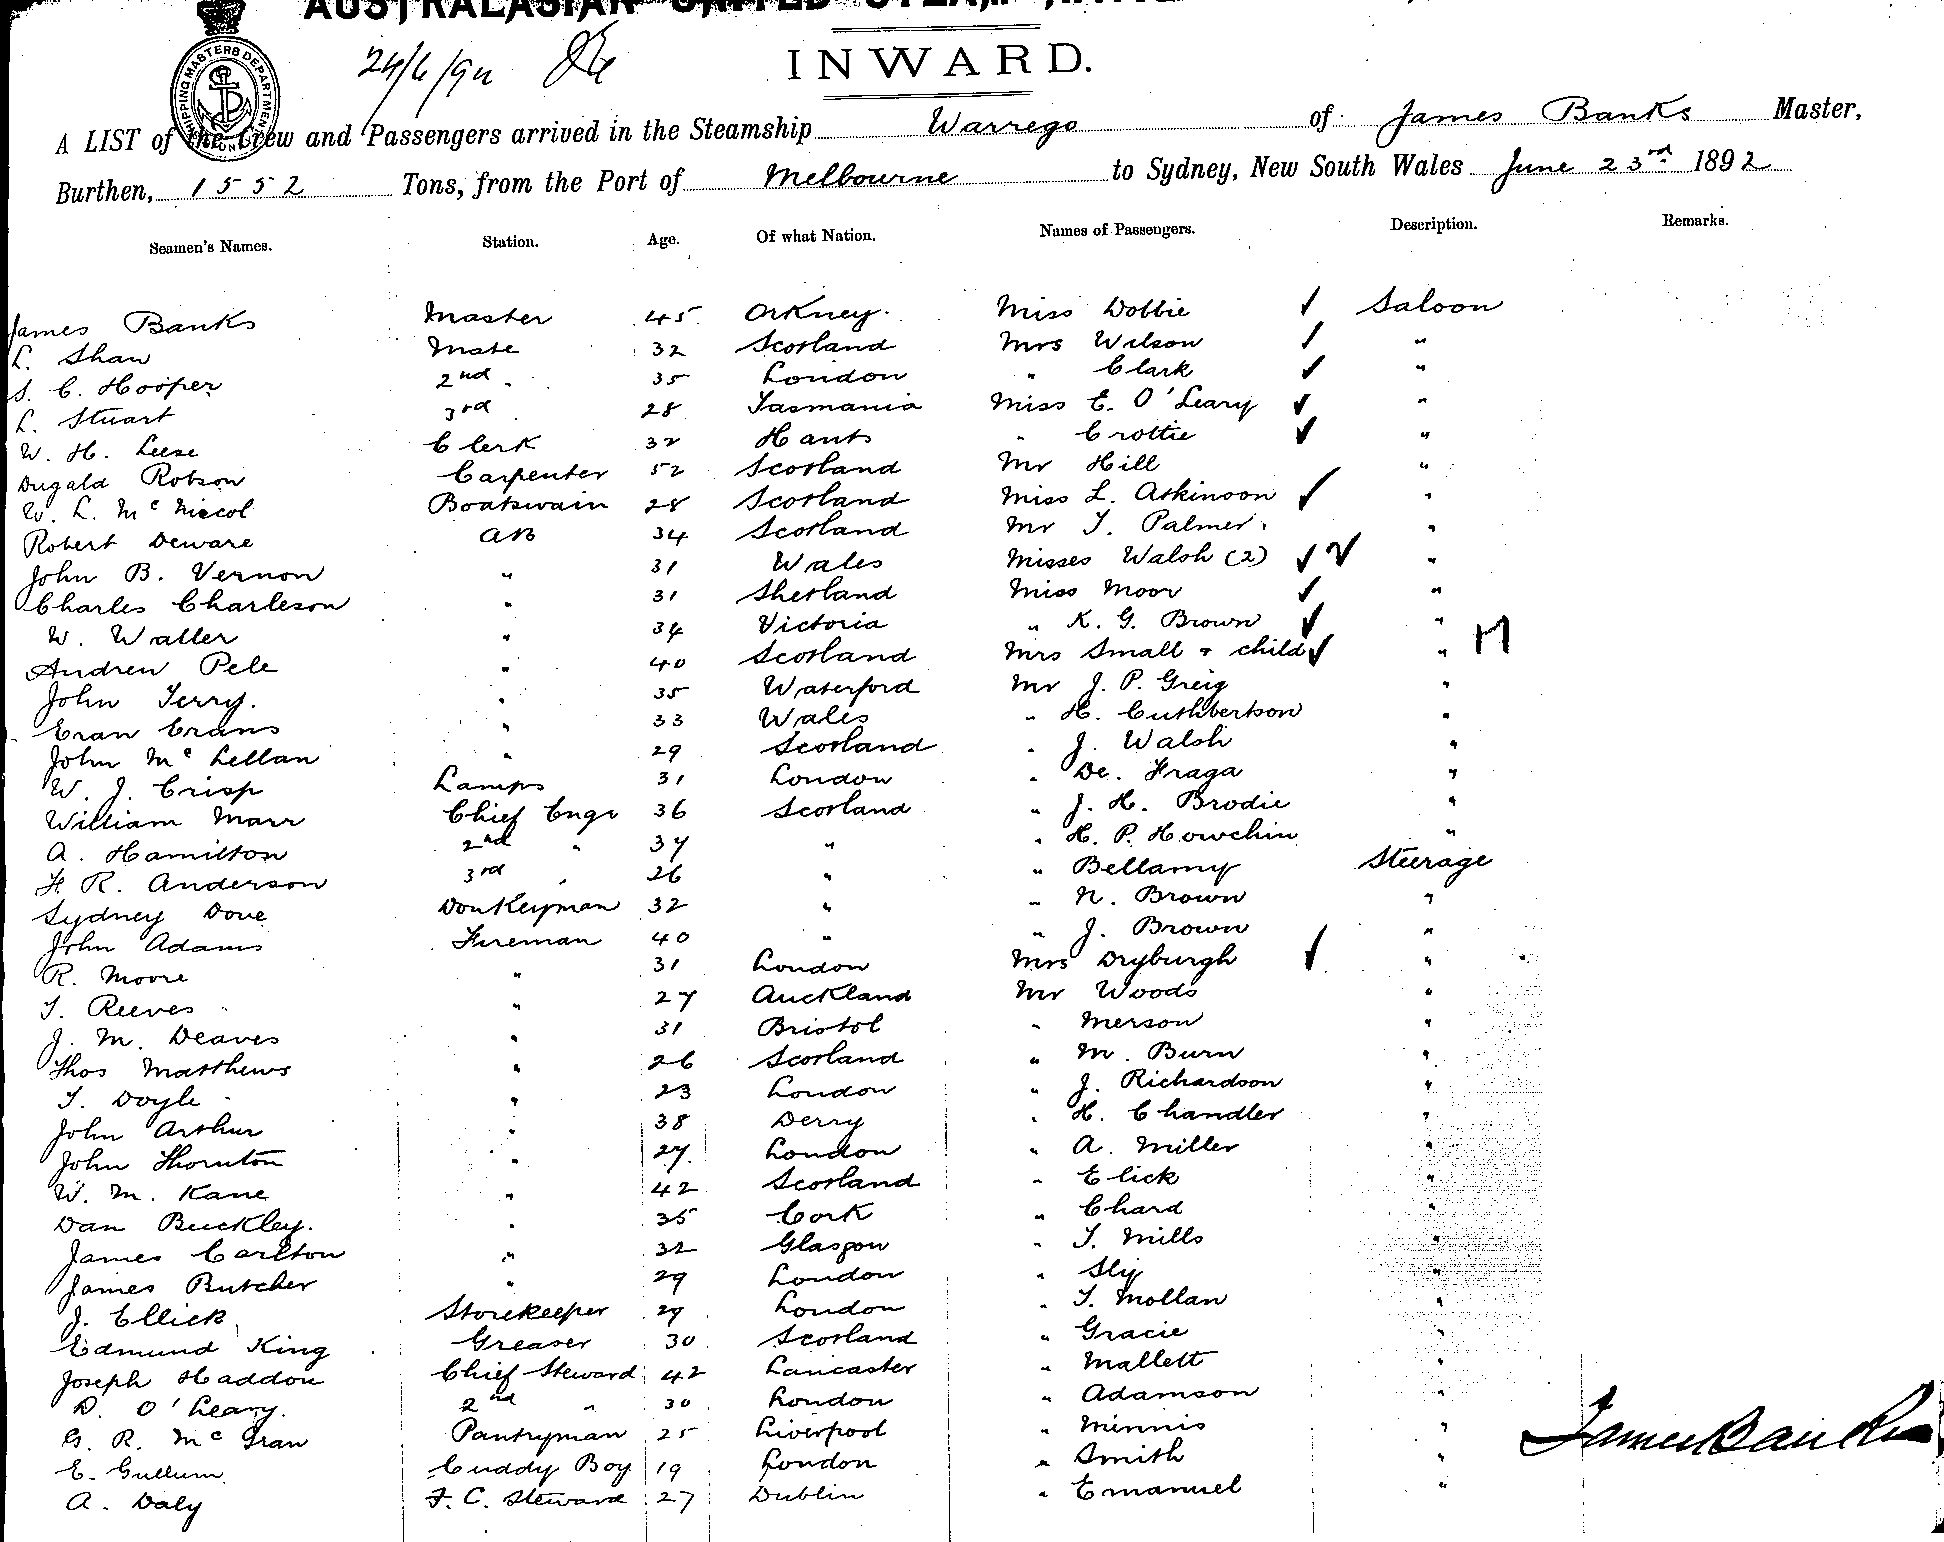 AUSTRALASIAN UNITED STEAM
24/6/92
INWARD.
A LIST of the Crew and Passengers arrived in the Steamship Warrego of James Banks Master,
Burthen, 1552 Tons, from the Port of Melbourne to Sydney, New South Wales June 23rd 1892
Seamen's Names. Station. Age. Of what Nation. Names of Passengers. Description. Remarks.
James Banks Master 45 Orkney. Miss Dobbie ✓ Saloon
L. Shaw Mate 32 Scotland Mrs Wilson ✓ "
S. C. Hooper 2nd 35 London " Clark ✓ "
L. Stuart 3rd 28 Tasmania Miss E. O'Leary ✓ "
W. H. Leese Clerk 32 Hants " Crottie ✓ "
Dugald Robson Carpenter 52 Scotland Mr Hill "
W. L. Mc Niccol Boatswain 28 Scotland Miss L. Atkinson ✓ "
Robert Deware AB 34 Scotland Mr T. Palmer. "
John B. Vernon " 31 Wales Misses Walsh (2) ✓✓ "
Charles Charleson " 31 Shetland Miss Moor ✓ "
W. Waller " 34 Victoria " K. G. Brown ✓ "
Andrew Pele " 40 Scotland Mrs Small + child ✓ "
John Terry. " 35 Waterford Mr J. P. Greig "
Evan Evans " 33 Wales " H. Cuthbertson "
John Mc Lellan " 29 Scotland " J. Walsh "
W. J. Crisp Lamps 31 London " De. Fraga "
William Marr Chief Engr 36 Scotland " J. H. Brodie "
A. Hamilton 2nd " 37 " " H. P. Howchin "
F. R. Anderson 3rd " 26 " " Bellamy Steerage
Sydney Dove Donkeyman 32 " " N. Brown "
John Adams Fireman 40 " " J. Brown "
R. Moore " 31 London Mrs Dryburgh ✓ "
T. Reeves " 27 Auckland Mr Woods "
J. M. Deaves " 31 Bristol " Merson "
Thos Matthews " 26 Scotland " M. Burn "
T. Doyle " 23 London " J. Richardson "
John Arthur " 38 Derry " H. Chandler "
John Thornton " 27 London " A. Miller "
W. M. Kane " 42 Scotland " Elick "
Dan Buckley. " 35 Cork " Chard "
James Carlton " 32 Glasgow " T. Mills "
James Butcher " 29 London " Sly "
J. Ellick Storekeeper 29 London " T. Mollan "
Edmund King Greaser 30 Scotland " Gracie "
Joseph Haddon Chief Steward 42 Lancaster " Mallett "
D. O'Leary. 2nd " 30 London " Adamson "
G. R. Mc Gran Pantryman 25 Liverpool " Minnis "
E. Gullum Cuddy Boy 19 London " Smith "
A. Daly F. C. Steward 27 Dublin " Emanuel "
James Banks